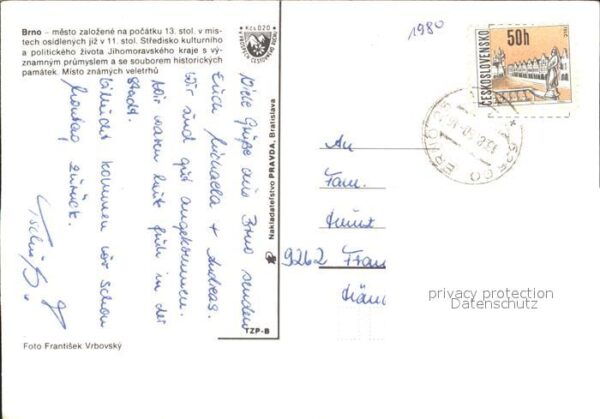 Brno – město založené na počátku 13. stol. v mís-
tech osídlených již v 11. stol. Středisko kulturního
a politického života Jihomoravského kraje s vý-
znamným průmyslem a se souborem historických
památek. Místo známých veletrhů
Kčs 0,20
Viele Grüße aus Brno senden
Euch Michaela + Andreas.
Wir sind gut angekommen.
Wir waren heut früh in der
Stadt.
Villeicht kommen wir schon
Montag zurück.
Tschüß!
Foto František Vrbovský
Nakladatelstvo PRAVDA, Bratislava
TZP-B
1980
50h
ČESKOSLOVENSKO
BRNO
An
Fam.
9262
privacy protection
Datenschutz